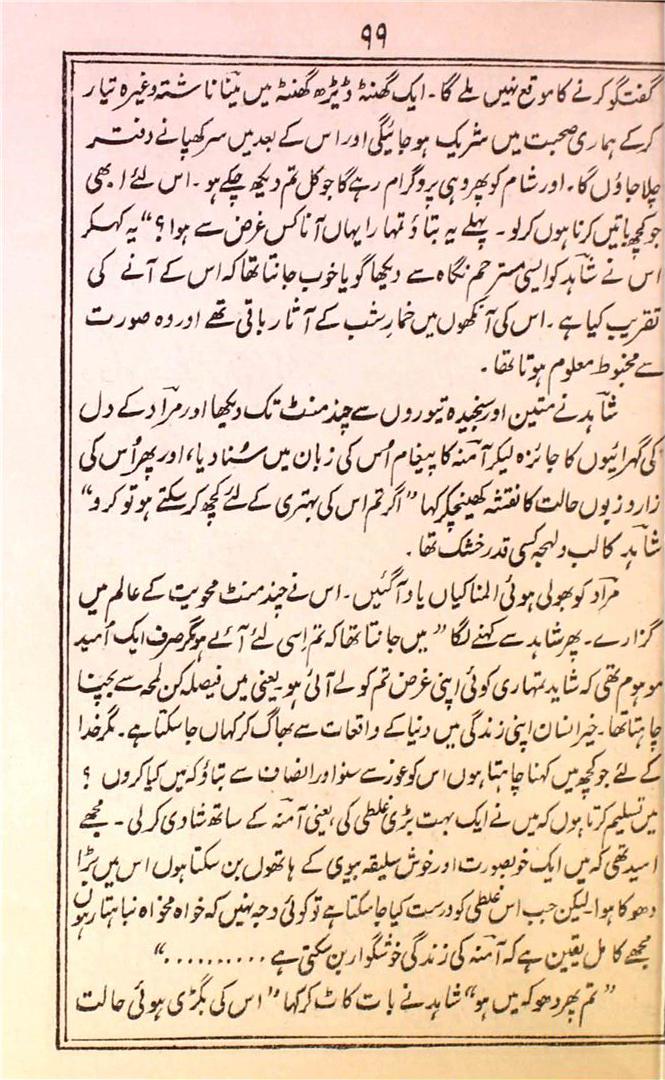 ۹۹
گفتگو کرنے کا موقع نہیں ملے گا۔ ایک گھنٹہ ڈیڑھ گھنٹہ میں مینا ناشتہ وغیرہ تیار
کر کے ہماری صحبت میں شریک ہو جائیگی اور اس کے بعد میں سر کھپانے دفتر
چلا جاؤں گا۔ اور شام کو پھر وہی پروگرام رہے گا جو کل تم دیکھ چکے ہو۔ اس لئے ابھی
جو کچھ باتیں کرنا ہوں کر لو۔ پہلے یہ بتاؤ تمہارا یہاں آنا کس غرض سے ہوا؟“ یہ کہکر
اس نے شاہد کو ایسی مترحم نگاہ سے دیکھا گویا خوب جانتا تھا کہ اس کے آنے کی
تقریب کیا ہے۔ اس کی آنکھوں میں خمارِ شب کے آثار باقی تھے اور وہ صورت
سے مخبوط معلوم ہوتا تھا۔
شاہد نے متین اور سنجیدہ تیوروں سے چند منٹ تک دیکھا اور مراد کے دل
کی گہرائیوں کا جائزہ لیکر آمنہ کا پیغام اُس کی زبان میں سُنا دیا، اور پھر اُس کی
زار و زبوں حالت کا نقشہ کھینچکر کہا ”اگر تم اس کی بہتری کے لئے کچھ کر سکتے ہو تو کرو“
شاہد کا لب و لہجہ کسی قدر خشک تھا۔
مراد کو بھولی ہوئی المناکیاں یاد آگئیں۔ اس نے چند منٹ محویت کے عالم میں
گزارے۔ پھر شاہد سے کہنے لگا ”میں جانتا تھا کہ تم اِسی لئے آئے ہو مگر صرف ایک اُمید
موہوم تھی کہ شاید تمہاری کوئی اپنی غرض تم کو لے آئی ہو۔ یعنی میں فیصلہ کن لمحہ سے بچنا
چاہتا تھا۔ خیر انسان اپنی زندگی میں دنیا کے واقعات سے بھاگ کر کہاں جا سکتا ہے۔ مگر خدا
کے لئے جو کچھ میں کہنا چاہتا ہوں اس کو غور سے سنو اور انصاف سے بتاؤ کہ میں کیا کروں ؟
میں تسلیم کرتا ہوں کہ میں نے ایک بہت بڑی غلطی کی، یعنی آمنہ کے ساتھ شادی کر لی۔ مجھے
امید تھی کہ میں ایک خوبصورت اور خوش سلیقہ بیوی کے ہاتھوں بن سکتا ہوں اس میں بڑا
دھوکا ہوا۔ لیکن جب اس غلطی کو درست کیا جا سکتا ہے تو کوئی وجہ نہیں کہ خواہ مخواہ نباہتا رہوں
مجھے کامل یقین ہے کہ آمنہ کی زندگی خوشگوار بن سکتی ہے ..........“
”تم پھر دھوکہ میں ہو“ شاہد نے بات کاٹ کر کہا ”اس کی بگڑی ہوئی حالت